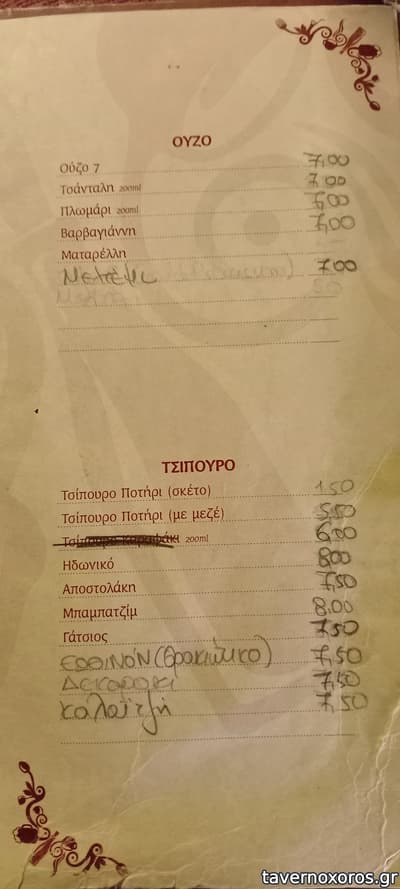 ΟΥΖΟ
Ούζο 7 7,00
Τσάνταλη 200ml 7,00
Πλωμάρι 200ml 7,00
Βαρβαγιάννη 7,00
Ματαρέλλη
7,00
ΤΣΙΠΟΥΡΟ
Τσίπουρο Ποτήρι (σκέτο) 1,50
Τσίπουρο Ποτήρι (με μεζέ) 5,50
Τσίπουρο καραφάκι 200ml 6,00
Ηδωνικό 8,00
Αποστολάκη 7,50
Μπαμπατζίμ 8,00
Γάτσιος 7,50
ΕΩΘΙΝΟΝ (θρακιώτικο) 7,50
ΔΕΚΑΡΑΚΙ 7,50
καλαϊτζή 7,50
tavernoxoros.gr